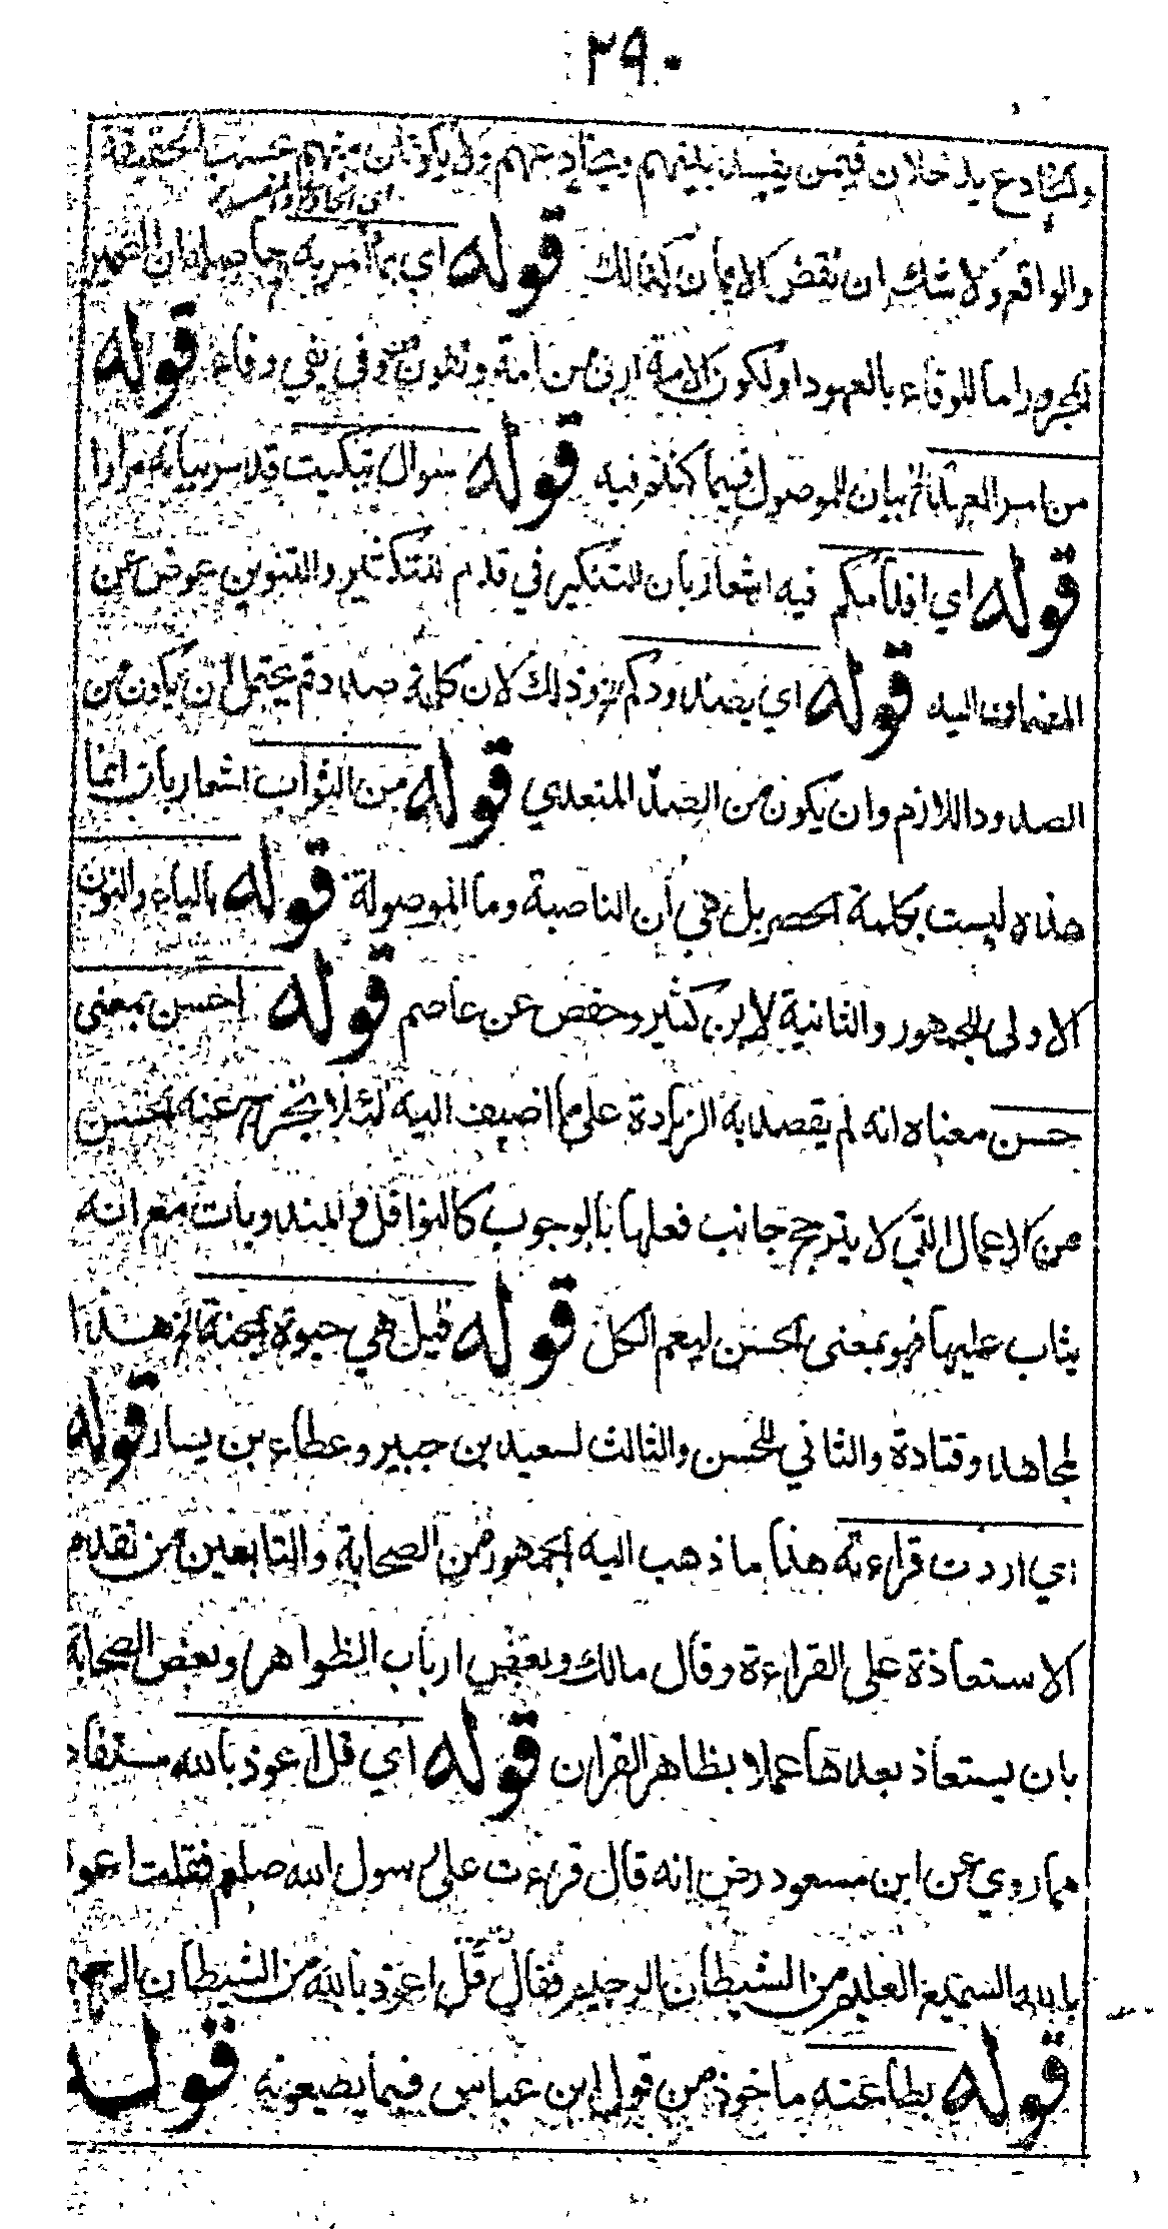 ٢٩٠
والخادع يدخلان فيمن يفسد بينهم ويضاد عنهم ولا يكونان منهم بحسب الحقيقة
والواقع ولا شك ان نقض الايمان كذالك قوله اي بما امر به حاصله ان الضمير
المجرور اما للوفاء بالعهود او لكون الامة اربى من امة ونهون في وفاء قوله
من امر العهد الخ بيان الموصول فيما كنتم فيه قوله سوال تبكيت قد مر بيانه مرارا
قوله اي اقدامكم فيه اشعار بان التنكير في قدم للتكثير والتنوين عوض عن
المضاف اليه قوله اي بصدودكم الخ وذلك لان كلمة صددتم يحتمل ان يكون من
الصدود اللازم وان يكون من الصد المتعدي قوله من الثواب اشعار بان انما
هذه ليست بكلمة الحصر بل هي ان الناصبة وما الموصولة قوله بالياء والنون
الاولى للجمهور والثانية لابن كثير وحفص عن عاصم قوله احسن بمعنى
حسن معناه انه لم يقصد به الزيادة على ما اضيف اليه لئلا يخرج عنه الحسن
من الاعمال التي لا يترجح جانب فعلها بالوجوب كالنوافل والمندوبات مع انه
يثاب عليها فهو بمعنى الحسن ليعم الكل قوله قيل هي حيوة الجنة الخ هذا
لمجاهد وقتادة والثاني للحسن والثالث لسعيد بن جبير وعطاء بن يسار قوله
اي اردت قراءته هذا ما ذهب اليه الجمهور من الصحابة والتابعين من تقديم
الاستعاذة على القراءة وقال مالك وبعض ارباب الظواهر وبعض الصحابة
بان يستعاذ بعدها عملا بظاهر القران قوله اي قل اعوذ بالله مستفاد
مما روي عن ابن مسعود رض انه قال قرءت على رسول الله صلعم فقلت اعوذ
بالله السميع العليم من الشيطان الرجيم فقال قل اعوذ بالله من الشيطان الرجيم
قوله بطاعته ماخوذ من قول ابن عباس فيما يطيعونه قوله